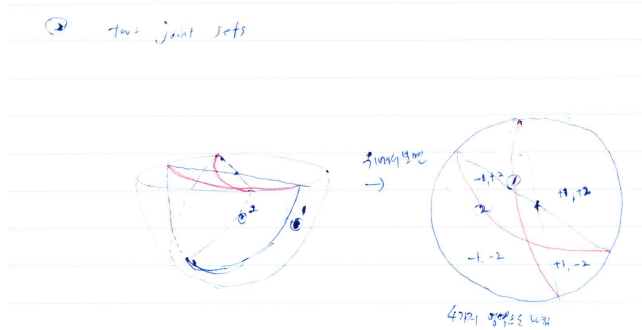 ② two joint sets
위에서 보면
→
② 2
① 1
-1, +2
①
+1, +2
2
-1, -2
+1, -2
4가지 영역으로 나뉨